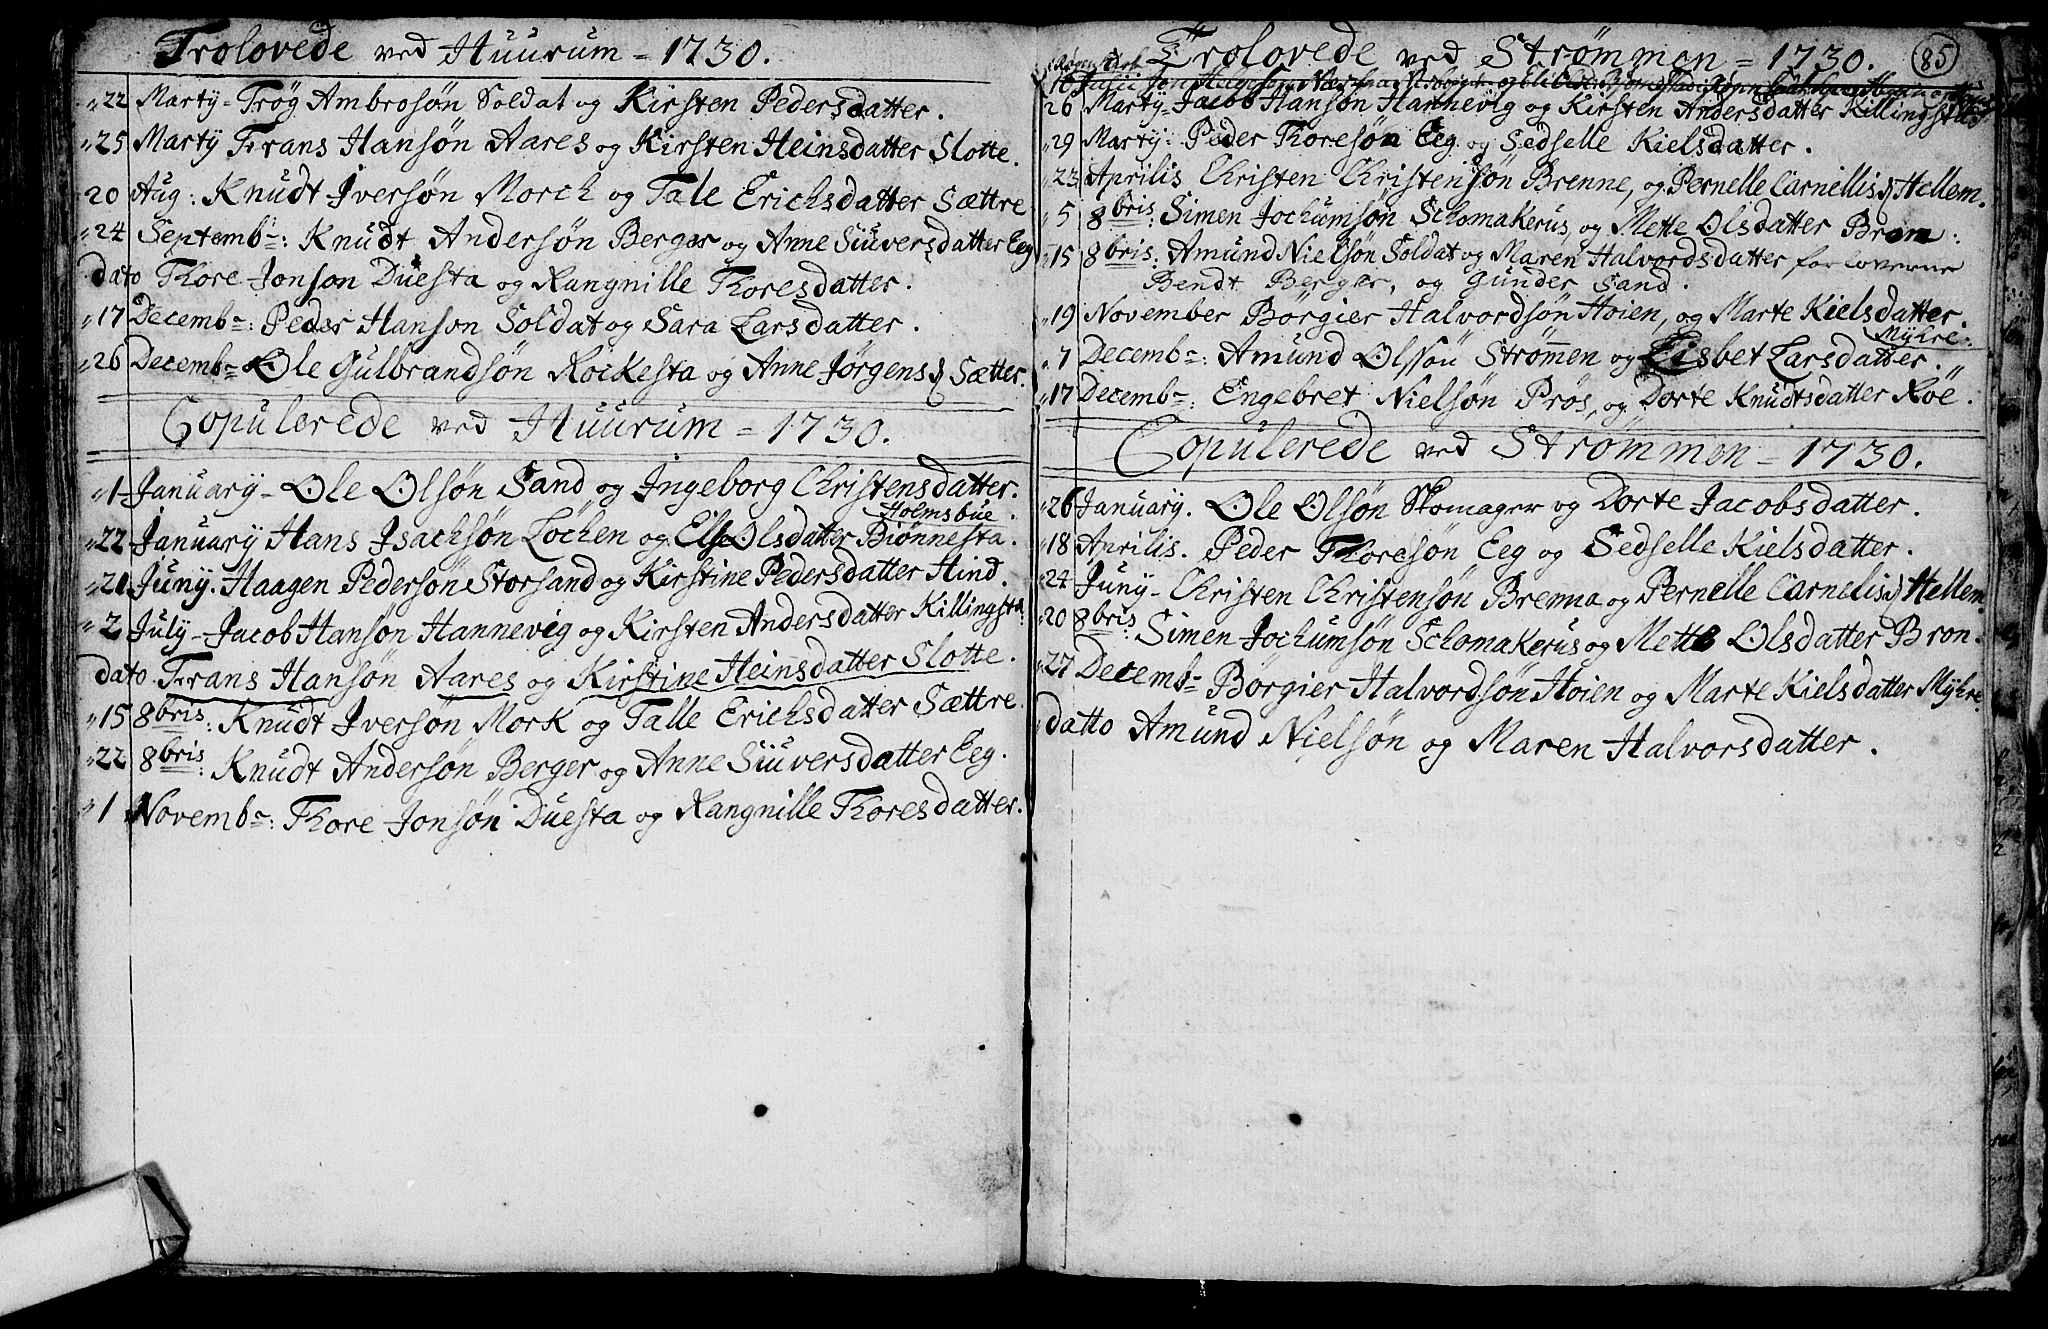 Trolovede ved Huurum = 1730.
22 Marty - Trög Ambrosøn Soldat og Kirsten Pedersdatter.
25 Marty Frans Hansøn Aares og Kirsten Heinsdatter Slotte.
20 Aug: Knudt Iversøn Morch og Tale Erichsdatter Sættre
24 Septembr: Knudt Andersøn Berger og Anne Siuversdatter Eeg
dato Thore Jonson Duesta og Rangnille Thoresdatter.
17 Decembr: Peder Hanson Soldat og Sara Larsdatter.
26 Decembr Ole Gulbrandsøn Röckesta og Anne Jörgensd Sætter.
Copulerede ved Huurum = 1730.
1 January - Ole Olsøn Sand og Ingeborg Christensdatter.
Holmsbue
22 January Hans Isachsøn Löchen og Else Olsdatter Biönnesta.
21 Juny. Haagen Pedersøn Storsand og Kirstine Pedersdatter Hind.
2 July - Jacob Hansøn Hannevig og Kirsten Andersdatter Killingsta
dato Frans Hansøn Aares og Kirstine Heinsdatter Slotte.
15 8bris: Knudt Iversøn Mork og Talle Erichsdatter Sættre
22 8bris: Knudt Andersøn Berger og Anne Siuversdatter Eeg.
1 Novembr: Thore Jonsøn Duesta og Rangnille Thoresdatter.
Trolovede ved Strömmen = 1730. 85
26 Marty - Jacob Hansøn Hannevig og Kirsten Andersdatter Killingstad
29 Marty: Peder Thoresøn Eeg og Sedselle Kielsdatter.
23 Aprilis Christen Christensøn Brenne, og Pernelle Carnellisd Hellem.
5 8bris: Simen Jochumsøn Schomakerus, og Mette Olsdatter Bron:
15 8bris: Amund Nielsøn Soldat og Maren Halvordsdatter forloverne
Bendt Berger, og Gunder Sand.
19 November Börgier Halvordsøn Hoien, og Marte Kielsdatter.
Myhre:
7 Decembr: Amund Olssøn Strömen og Lisbet Larsdatter.
17 Decembr: Engebret Nielsøn Prös, og Dorte Knudtsdatter Röe.
Copulerede ved Strömmen = 1730.
26 January. Ole Olsøn Skomager og Dorte Jacobsdatter.
18 Aprilis. Peder Thoresøn Eeg og Sedselle Kielsdatter.
24 Juny - Christen Christensøn Brenna og Pernelle Carnelisd Hellem
20 8bris: Simen Jochumsøn Schomakerus og Mette Olsdatter Bron.
27 Decembr Börgier Halvordsøn Hoien og Marte Kielsdatter Myhre
datto Amund Nielsøn og Maren Halvorsdatter.